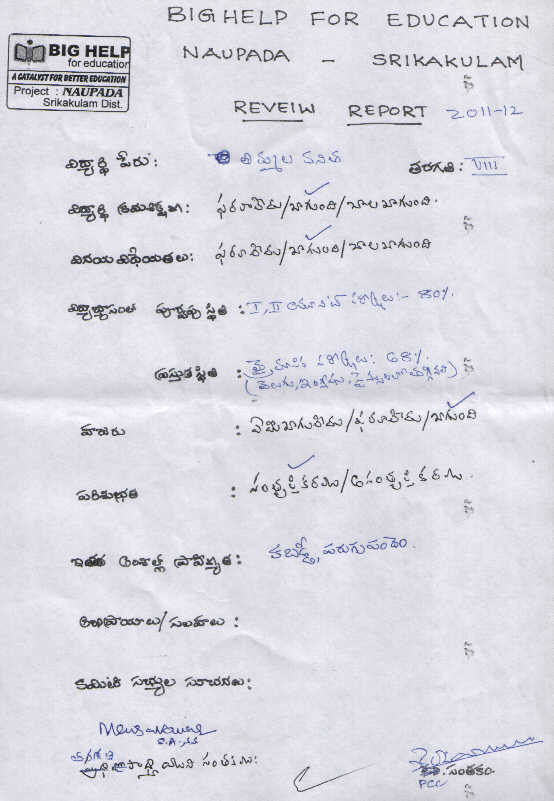 BIG HELP FOR EDUCATION
NAUPADA - SRIKAKULAM
BIG HELP
for education
A CATALYST FOR BETTER EDUCATION
Project : NAUPADA
Srikakulam Dist.
REVEIW REPORT 2011-12
విద్యార్థి పేరు: తిర్మల కవిత తరగతి: VIII
విద్యార్థి క్రమశిక్షణ: ఫరవాలేదు/బాగుంది/చాలబాగుంది.
వినయ విధేయతలు: ఫరవాలేదు/బాగుంది/చాలబాగుంది
పూర్వపు స్థితి : I, II యూనిట్ పరీక్షలు:- 80%.
ప్రస్తుత స్థితి : త్రైమాసిక పరీక్షలు: 68%.
(తెలుగు, ఇంగ్లీషు,
హాజరు : ఏమిబాగులేదు/ఫరవాలేదు/బాగుంది
పరిశుభ్రత : సంతృప్తికరము/అసంతృప్తికరము.
ఇతర అంశాల్లో ప్రావీణ్యత: కబడ్డీ, పరుగుపందెం.
అభిప్రాయాలు/సలహాలు :
కమిటీ సభ్యుల సూచనలు:
సంతకము:
సంతకం
PCC